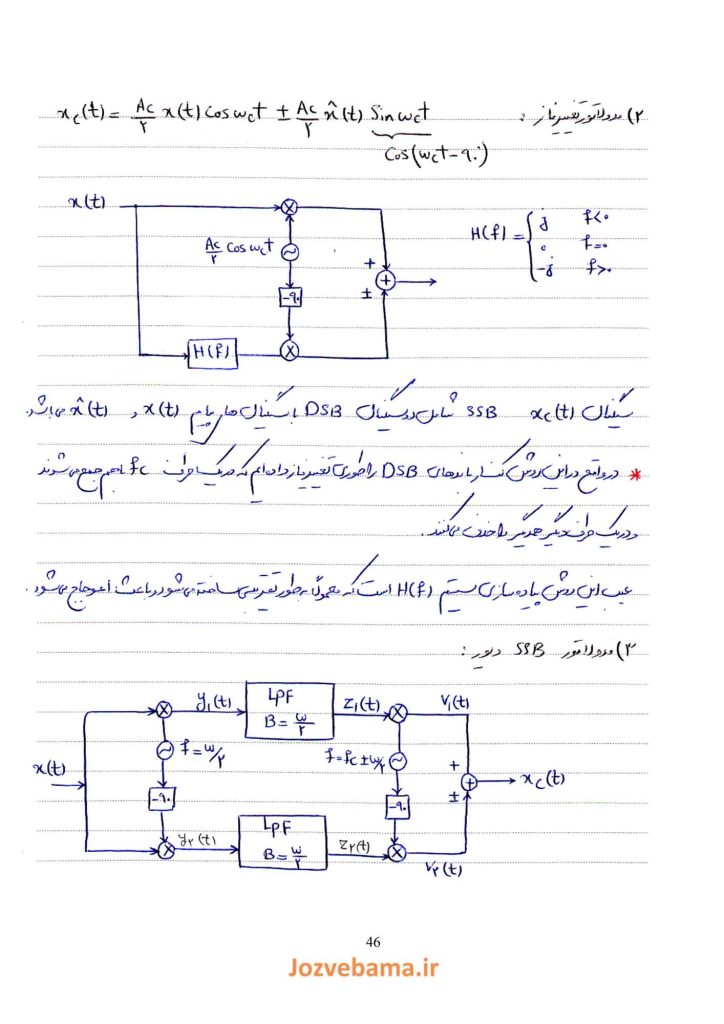 ۲) مدولاتور تغییر فاز :
x_c(t) = Ac/۲ x(t) Cos ω_c t ± Ac/۲ x̂(t) Sin ω_c t
Cos(ω_c t − ۹۰)
x(t)
Ac/۲ Cos ω_c t
-۹۰
H(f)
+
±
H(f) = { j f<۰
۰ f=۰
-j f>۰
سیگنال x_c(t) SSB شامل دو سیگنال DSB با سیگنال های پیام x(t) و x̂(t) می باشد.
* در واقع در این روش کنار باندهای DSB را طوری تغییر فاز داده ایم که در یک طرف fc با هم جمع می شوند
و در یک طرف دیگر همدیگر را حذف می کنند.
عیب این روش پیاده سازی سیستم H(f) است که معمولاً به طور تقریبی ساخته می شود و باعث اعوجاج می شود.
۳) مدولاتور SSB ویور :
x(t)
f = W/۲
-۹۰
y₁(t)
LPF
B = W/۲
z₁(t)
f = fc ± W/۲
-۹۰
v₁(t)
+
±
x_c(t)
y۲(t)
LPF
B = W/۲
z۲(t)
v۲(t)
46
Jozvebama.ir